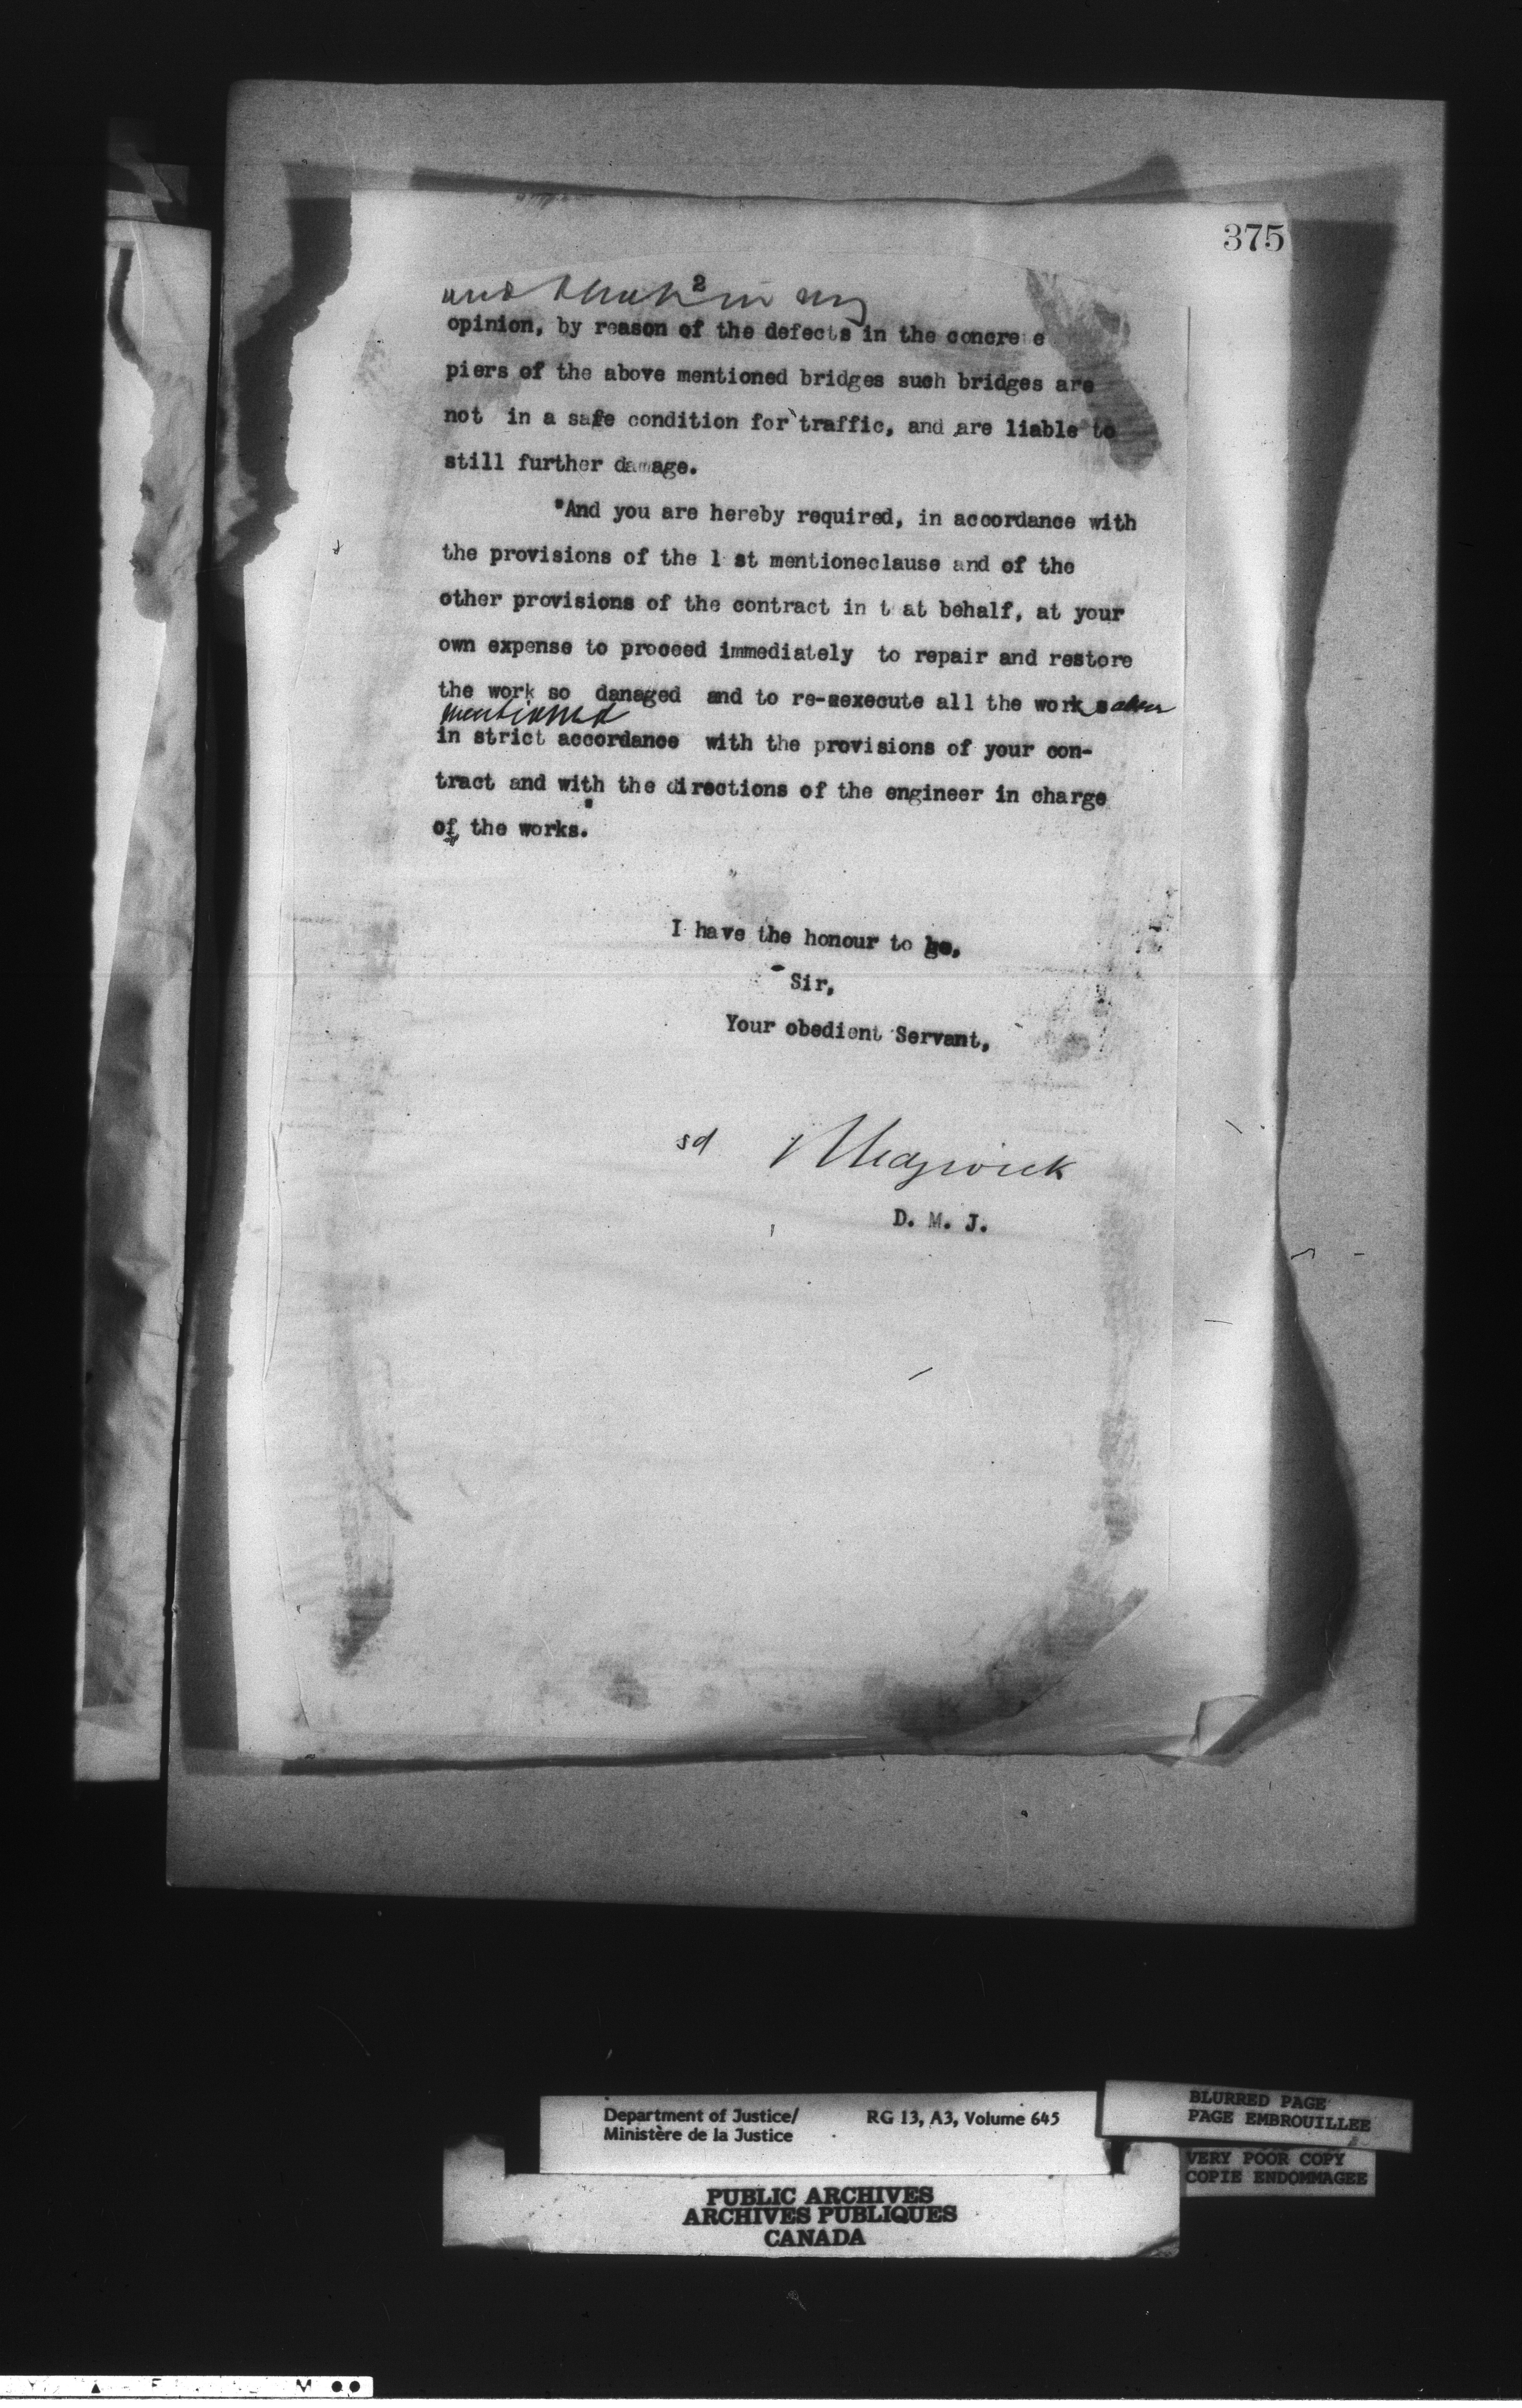 375
2
and that in my
opinion, by reason of the defects in the concre e
piers of the above mentioned bridges such bridges are
not in a safe condition for traffic, and are liable to
still further damage.
"And you are hereby required, in accordance with
the provisions of the l st mentioneclause and of the
other provisions of the contract in t at behalf, at your
own expense to proceed immediately to repair and restore
the work so danaged and to re-execute all the work above
mentioned
in strict accordance with the provisions of your con-
tract and with the directions of the engineer in charge
of the works.
I have the honour to be,
Sir,
Your obedient Servant,
sd Sedgwick
D. M. J.
Department of Justice/ RG 13, A3, Volume 645
Ministère de la Justice
BLURRED PAGE
PAGE EMBROUILLEE
VERY POOR COPY
COPIE ENDOMMAGEE
PUBLIC ARCHIVES
ARCHIVES PUBLIQUES
CANADA